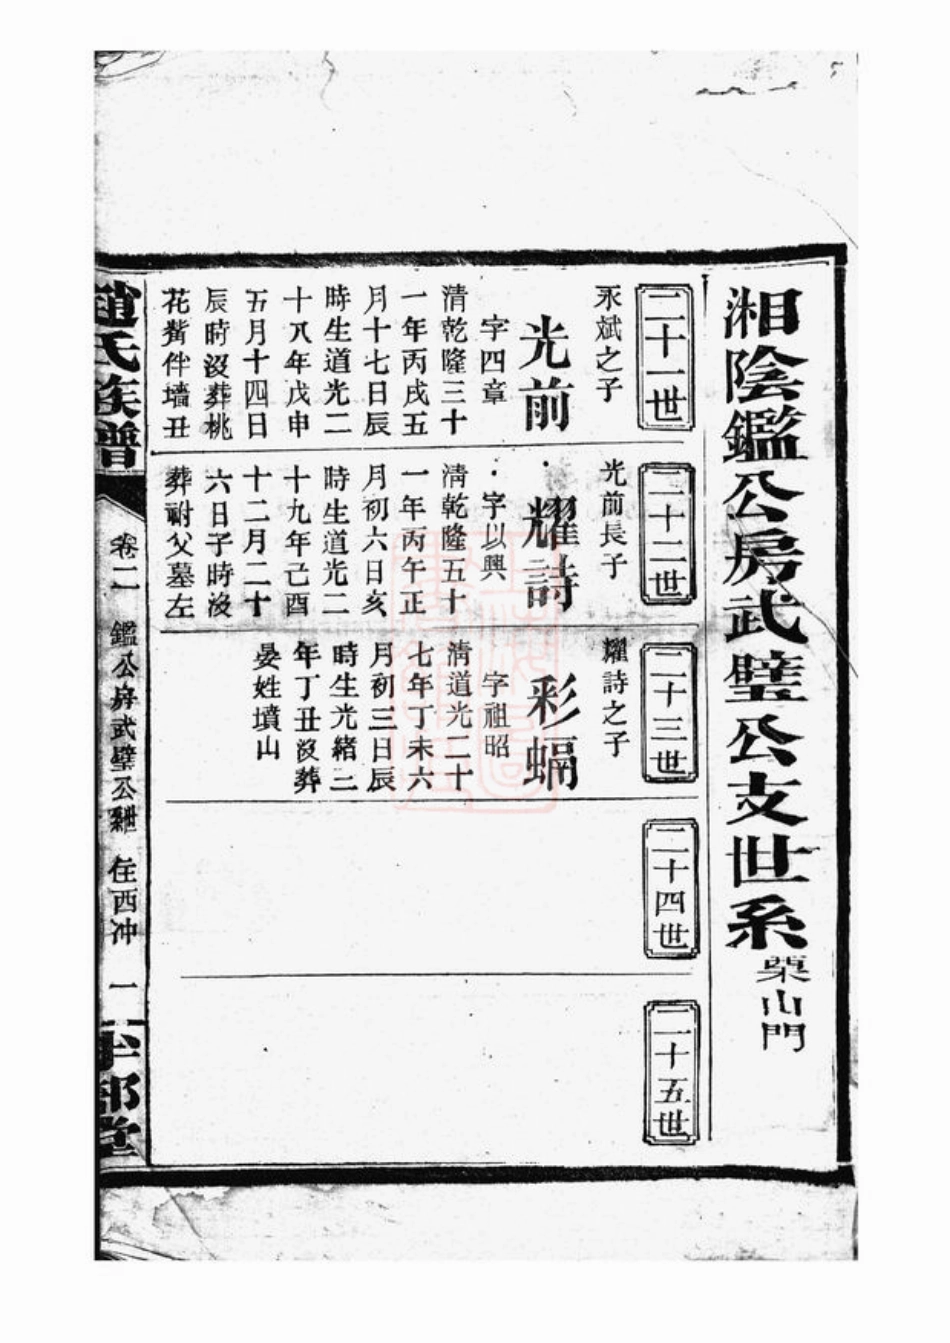 湘陰鑑公房武璧公支世系
菜山門
二十一世
永斌之子
光前
字四章
清乾隆三十
一年丙戌五
月十七日辰
時生道光二
十八年戊申
五月十四日
辰時沒葬桃
花觜伴墻丑
二十二世
光前長子
耀詩
字以興
清乾隆五十
一年丙午正
月初六日亥
時生道光二
十九年己酉
十二月二十
六日子時沒
葬祔父墓左
二十三世
耀詩之子
彩蝸
字祖昭
清道光二十
七年丁未六
月初三日辰
時生光緒三
年丁丑沒葬
晏姓墳山
二十四世
二十五世
趙氏族譜
卷二
鑑公房武璧公系
住西冲
一
半部堂